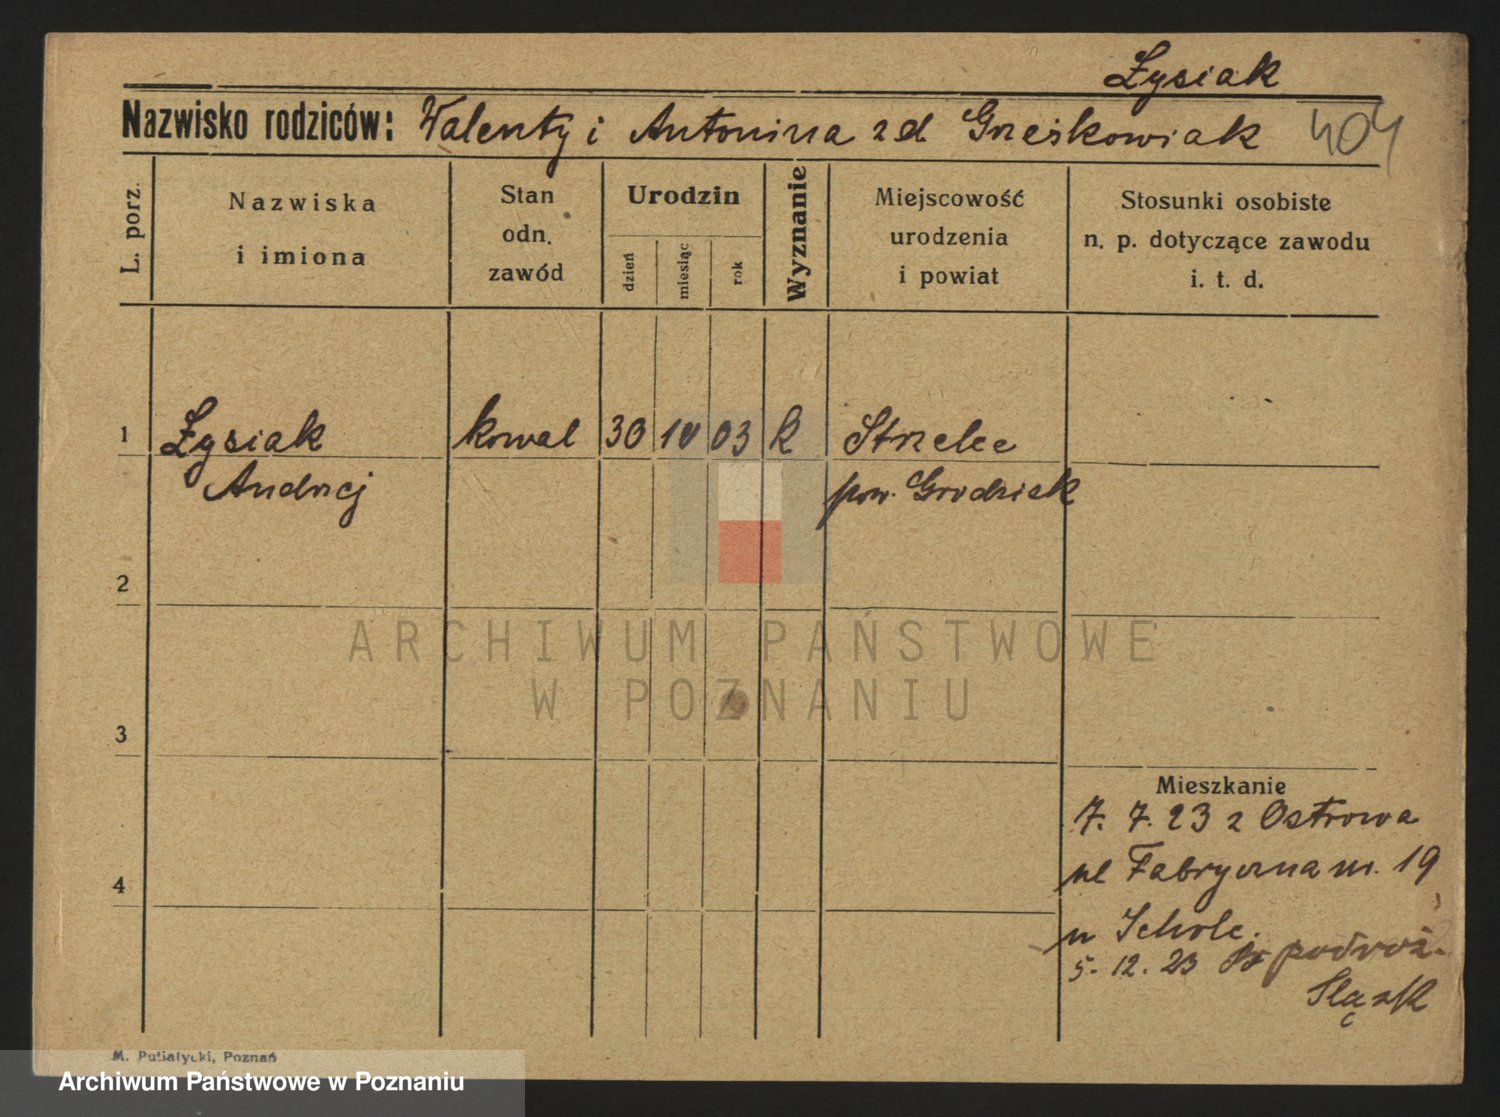 Łysiak
Nazwisko rodziców: Walenty i Antonina z d Grześkowiak 404
L. porz.
Nazwiska
i imiona
Stan
odn.
zawód
Urodzin
dzień
miesiąc
rok
Wyznanie
Miejscowość
urodzenia
i powiat
Stosunki osobiste
n. p. dotyczące zawodu
i. t. d.
1 Łysiak kowal 30 IV 03 k Strzelce
Andrzej pow. Grodzisk
2
ARCHIWUM PAŃSTWOWE
W POZNANIU
3
Mieszkanie
7. 7. 23 z Ostrowa
4
ul Fabryczna m. 19
u Schole.
5. 12. 23 podróż.
Śląsk
M. Putiatycki, Poznań
Archiwum Państwowe w Poznaniu